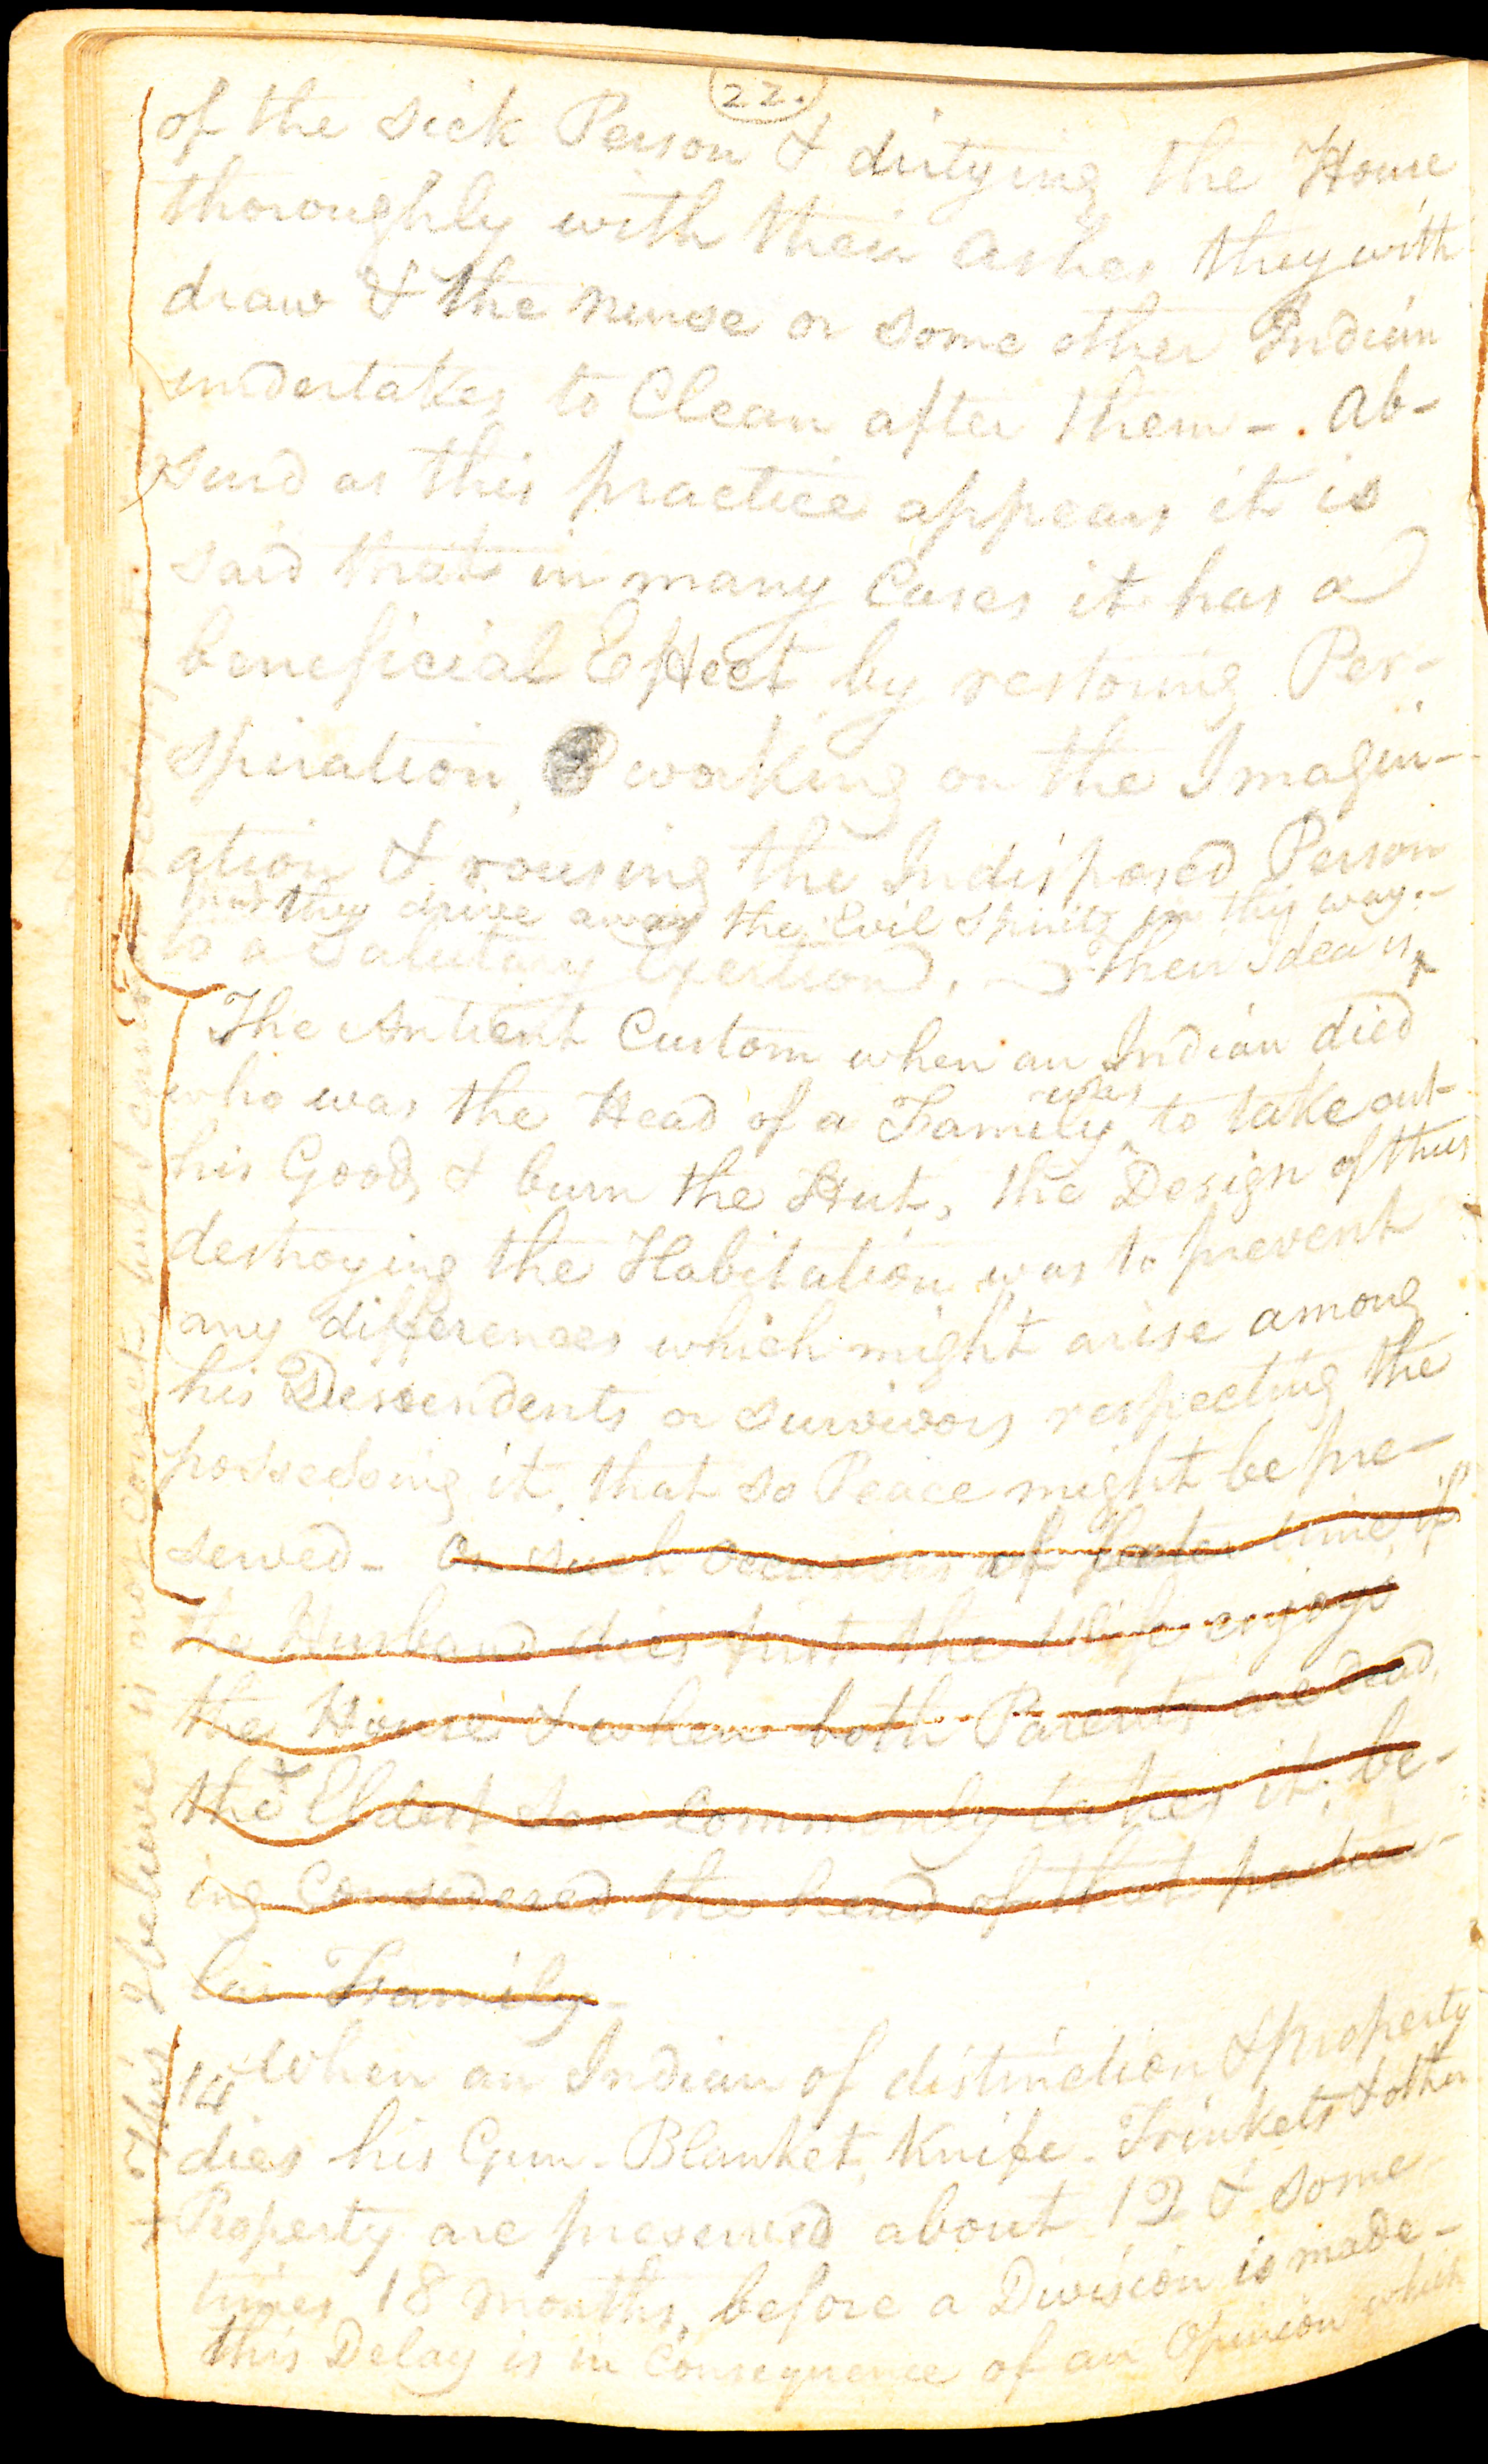 22.
of the sick Person & dirtying the House
thoroughly with their ashes they with
draw & the nurse or some other Indian
undertakes to Clean after them -. Ab-
surd as this practice appears it is
said that in many Cases it has a
beneficial Effect by restoring Per-
spiration, working on the Imagin-
ation & rousing the Indisposed Person
they drive away the Evil Spirits in this way.-
to a Salutary Exertion, - their Idea is
The Antient Custom when an Indian died
was
who was the Head of a Family to take out
his Goods & burn the Hut, the Design of thus
destroying the Habitation was to prevent
any differences which might arise among
his Descendents or survivors respecting the
possessing it, that so Peace might be pre-
served - On such occasions of later time, if
the Husband dies first the Wife enjoys
the House & when both Parents are dead,
the + Eldest son commonly takes it, be-
ing Considered the head of that particu-
lar Family -
14 When an Indian of distinction & property
dies his Gun - Blanket, Knife - Trinkets & other
Property are preserved about 12 & some
times 18 months, before a Division is made -
this Delay is in Consequence of an Opinion which
+ This I believe is not correct but I